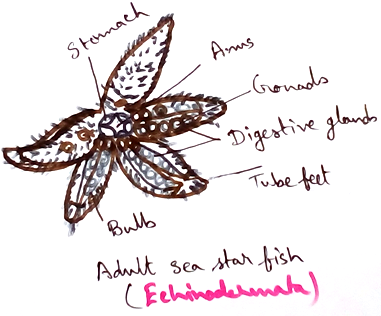 Stomach
Anus
Gonads
Digestive glands
Tube feet
Bulb
Adult sea star fish
(Echinodermata)